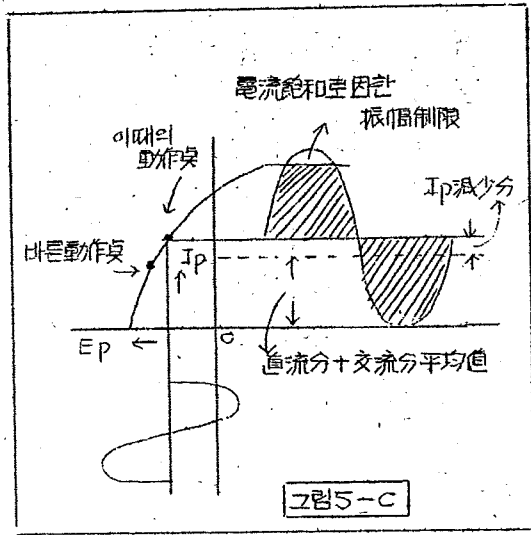 電流飽和로因한
振幅制限
이때의
動作点
Ip減少分
바른動作点
Ip
Ep
0
直流分+交流分平均値
그림5-C